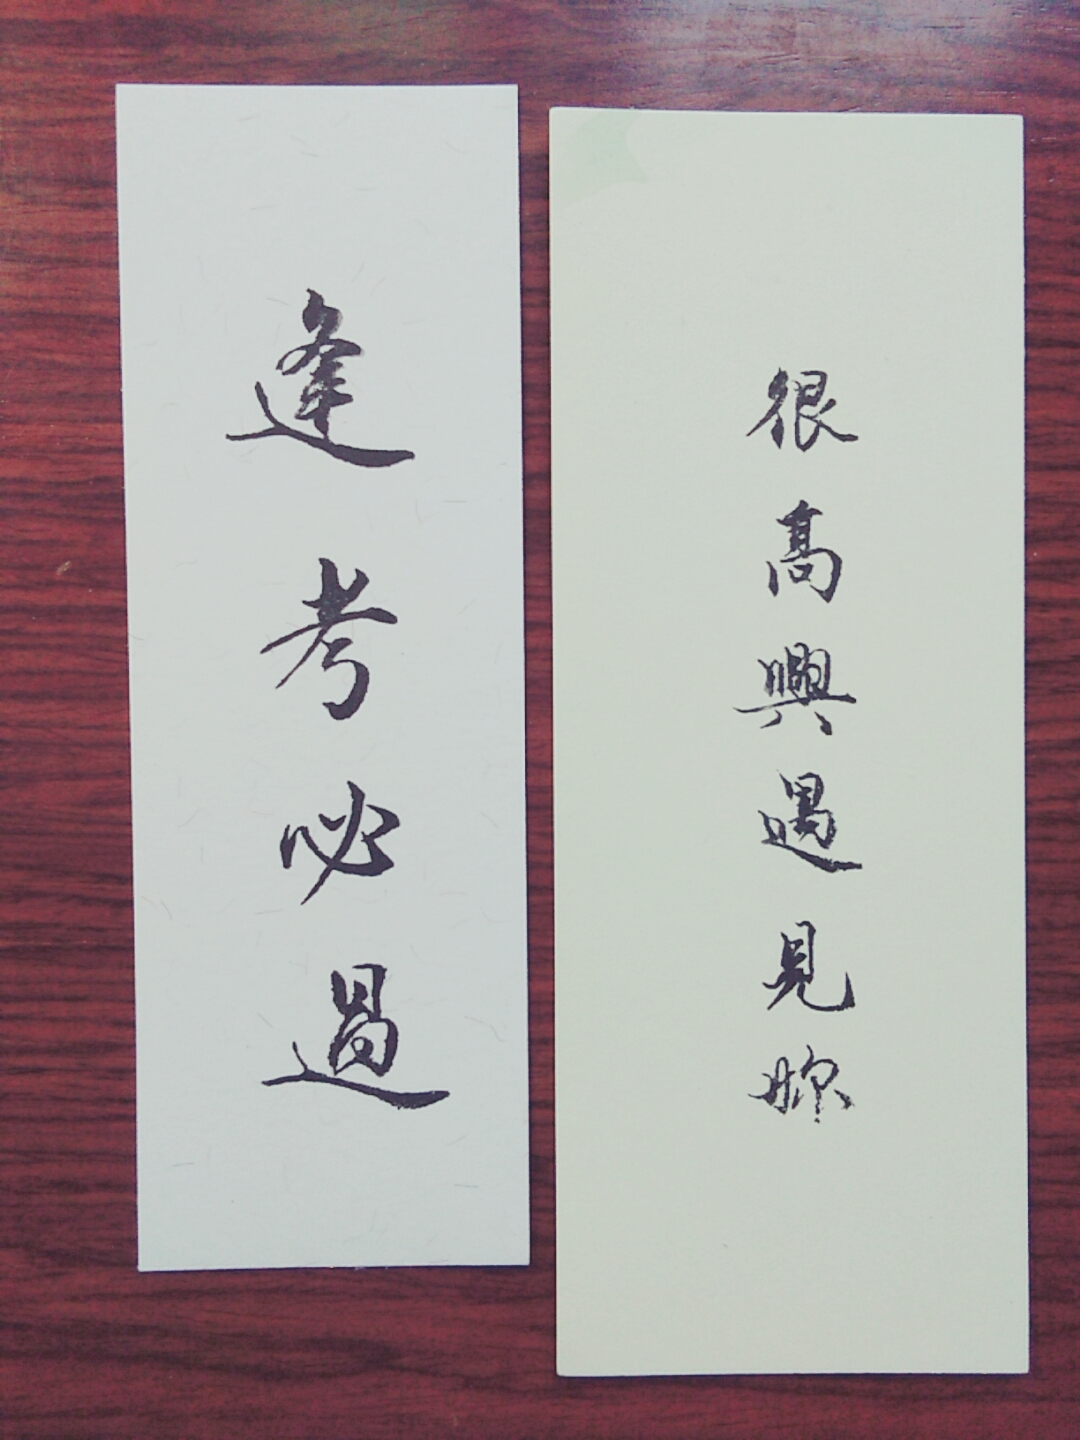 逢考必過
很高興遇見妳